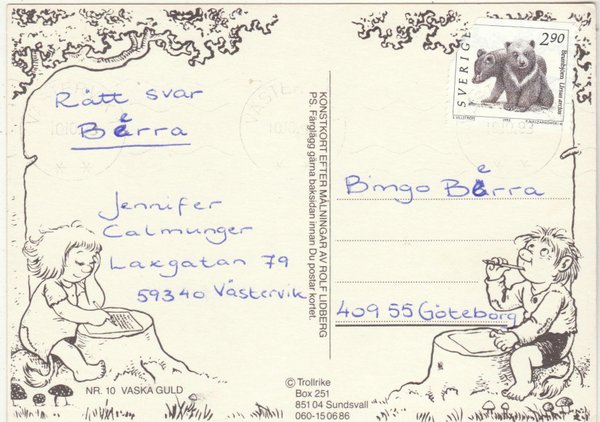 Rätt svar
Bèrra
Jennifer
Calmunger
Laxgatan 79
59340 Västervik
Bingo Bèrra
409 55 Göteborg
SVERIGE
2.90
KONSTKORT EFTER MÅLNINGAR AV ROLF LIDBERG
PS. Färglägg gärna baksidan innan Du postar kortet.
NR. 10 VASKA GULD
© Trollrike
Box 251
851 04 Sundsvall
060-15 06 86